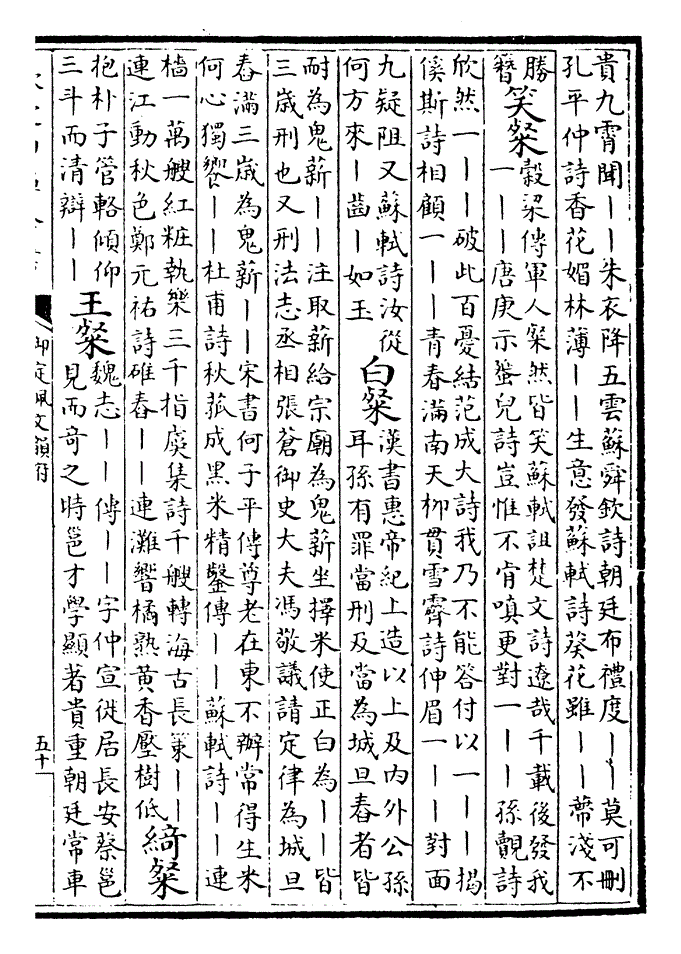 貴九霄聞――朱衣降五雲蘇舜欽詩朝廷布禮度――莫可刪
孔平仲詩香花媚林薄――生意發蘇軾詩葵花雖――蔕淺不
勝
簪
笑粲
榖梁傳軍人粲然皆笑蘇軾詛楚文詩遼哉千載後發我
一――唐庚示蜑兒詩豈惟不肯嗔更對一――孫覿詩
欣然一――破此百憂結范成大詩我乃不能答付以一――揭
傒斯詩相顧一――青春滿南天柳貫雪霽詩伸眉一――對面
九疑阻又蘇軾詩汝從
何方來―齒―如玉
白粲
漢書惠帝紀上造以上及内外公孫
耳孫有罪當刑及當為城旦舂者皆
耐為鬼薪――注取薪給宗廟為鬼薪坐擇米使正白為――皆
三歲刑也又刑法志丞相張蒼御史大夫馮敬議請定律為城旦
舂滿三歲為鬼薪――宋書何子平傳尊老在東不辦常得生米
何心獨饗――杜甫詩秋菰成黑米精鑿傳――蘇軾詩――連
檣一萬艘紅粧執樂三千指虞集詩千艘轉海古長策――
連江動秋色鄭元祐詩碓舂――連灘響橘熟黃香壓樹低
綺粲
抱朴子管輅傾仰
三斗而清辯――
王粲
魏志――傳――字仲宣徙居長安蔡邕
見而竒之時邕才學顯著貴重朝廷常車
御定佩文韻府
五十